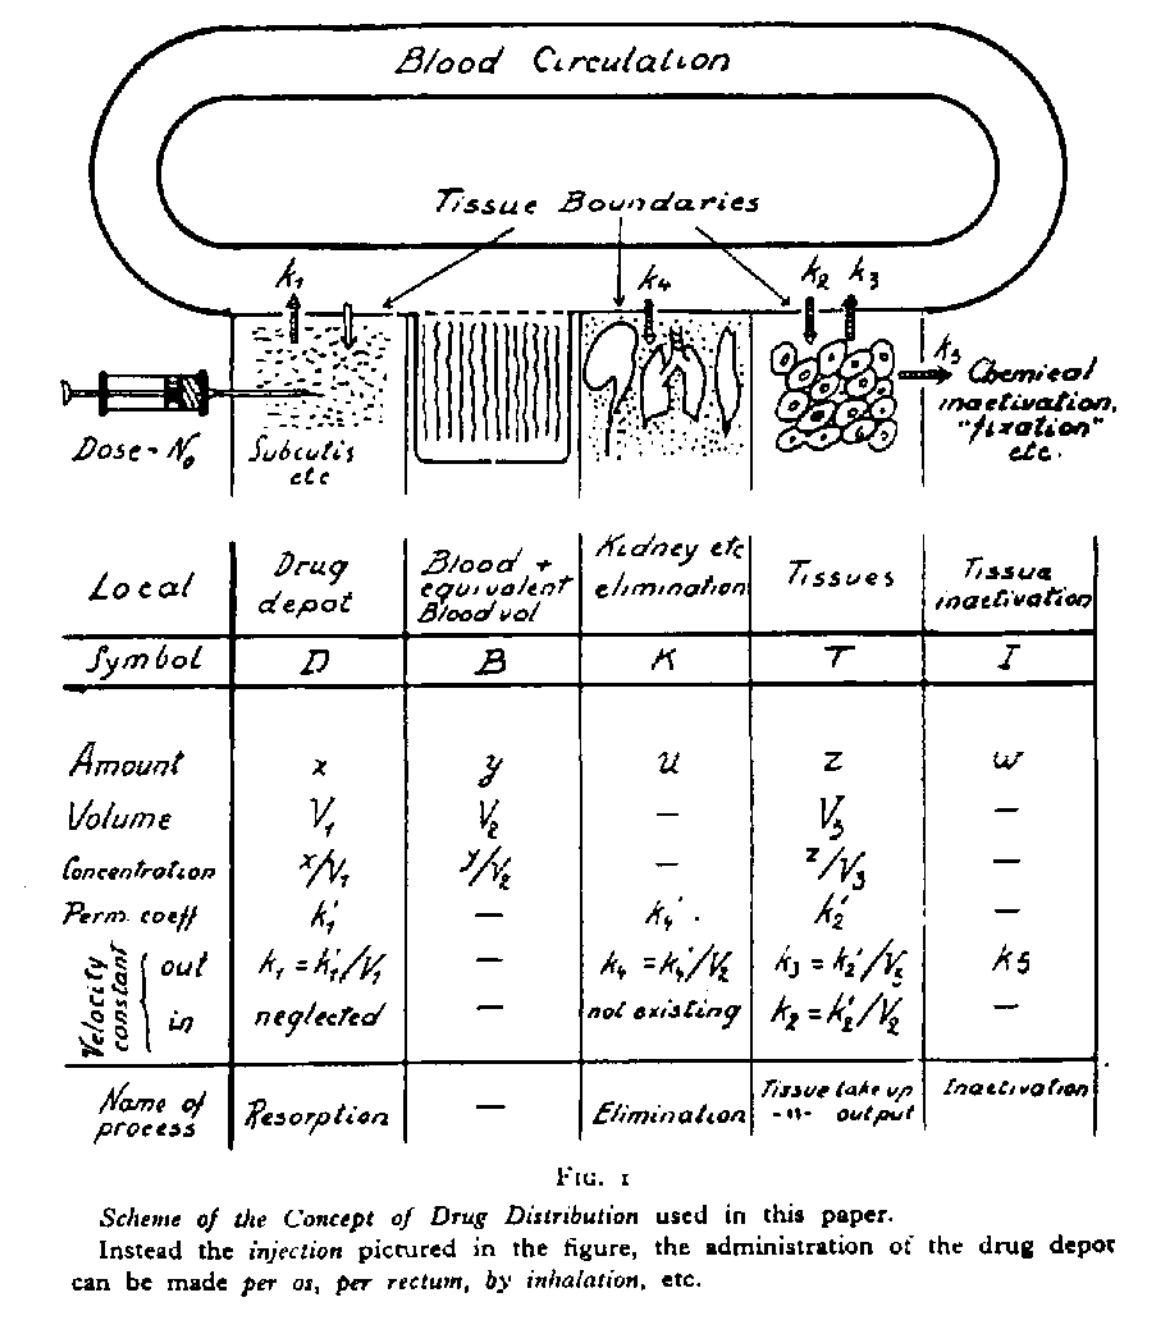 Blood Circulation
Tissue Boundaries
k₁
k₄
k₂ k₃
k₅
Chemical
inactivation,
"fixation"
etc.
Dose = N₀
Subcutis
etc
Local
Drug
depot
Blood +
equivalent
Blood vol
Kidney etc
elimination
Tissues
Tissue
inactivation
Symbol D B K T I
Amount x y u z w
Volume V₁ V₂ — V₃ —
Concentration x/V₁ y/V₂ — z/V₃ —
Perm. coeff k₁' — k₄' . k₂' —
Velocity
constant
out k₁ = k₁'/V₁ — k₄ = k₄'/V₂ k₃ = k₂'/V₃ k5
in neglected — not existing k₂ = k₂'/V₂ —
Name of
process
Resorption — Elimination
Tissue take up
-"- output
Inactivation
FIG. 1
Scheme of the Concept of Drug Distribution used in this paper.
Instead the injection pictured in the figure, the administration of the drug depot
can be made per os, per rectum, by inhalation, etc.